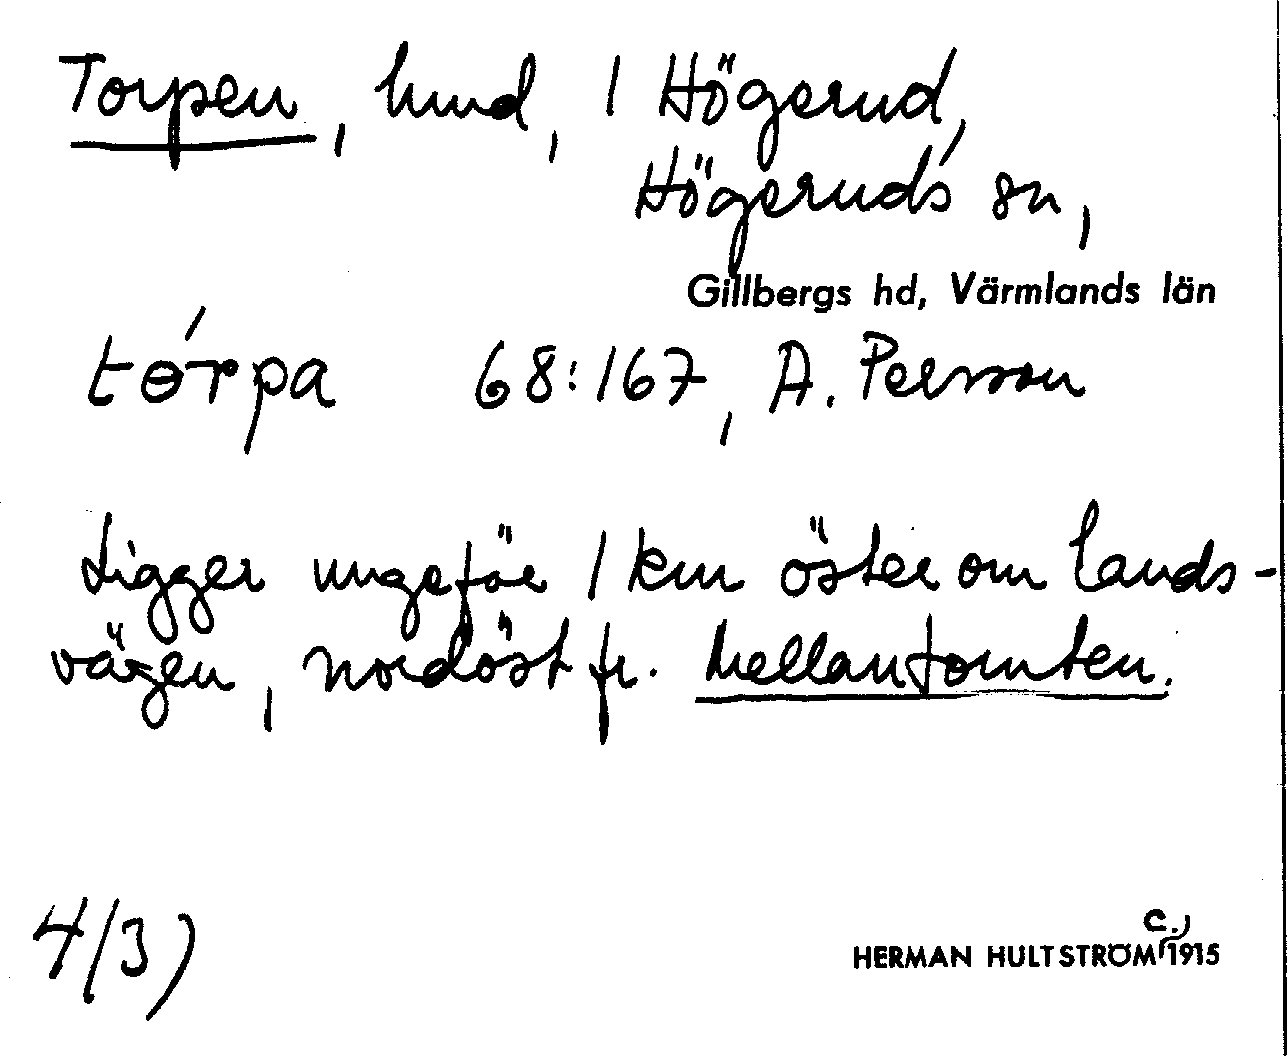 Torpen, hmd, 1 Högerud,
Högeruds sn,
Gillbergs hd, Värmlands län
tórpa 68:167, A. Persson
Ligger ungefär 1 km öster om lands-
vägen, nordöst fr. Mellantomten.
4/3)
c.,
HERMAN HULTSTRÖM 1915